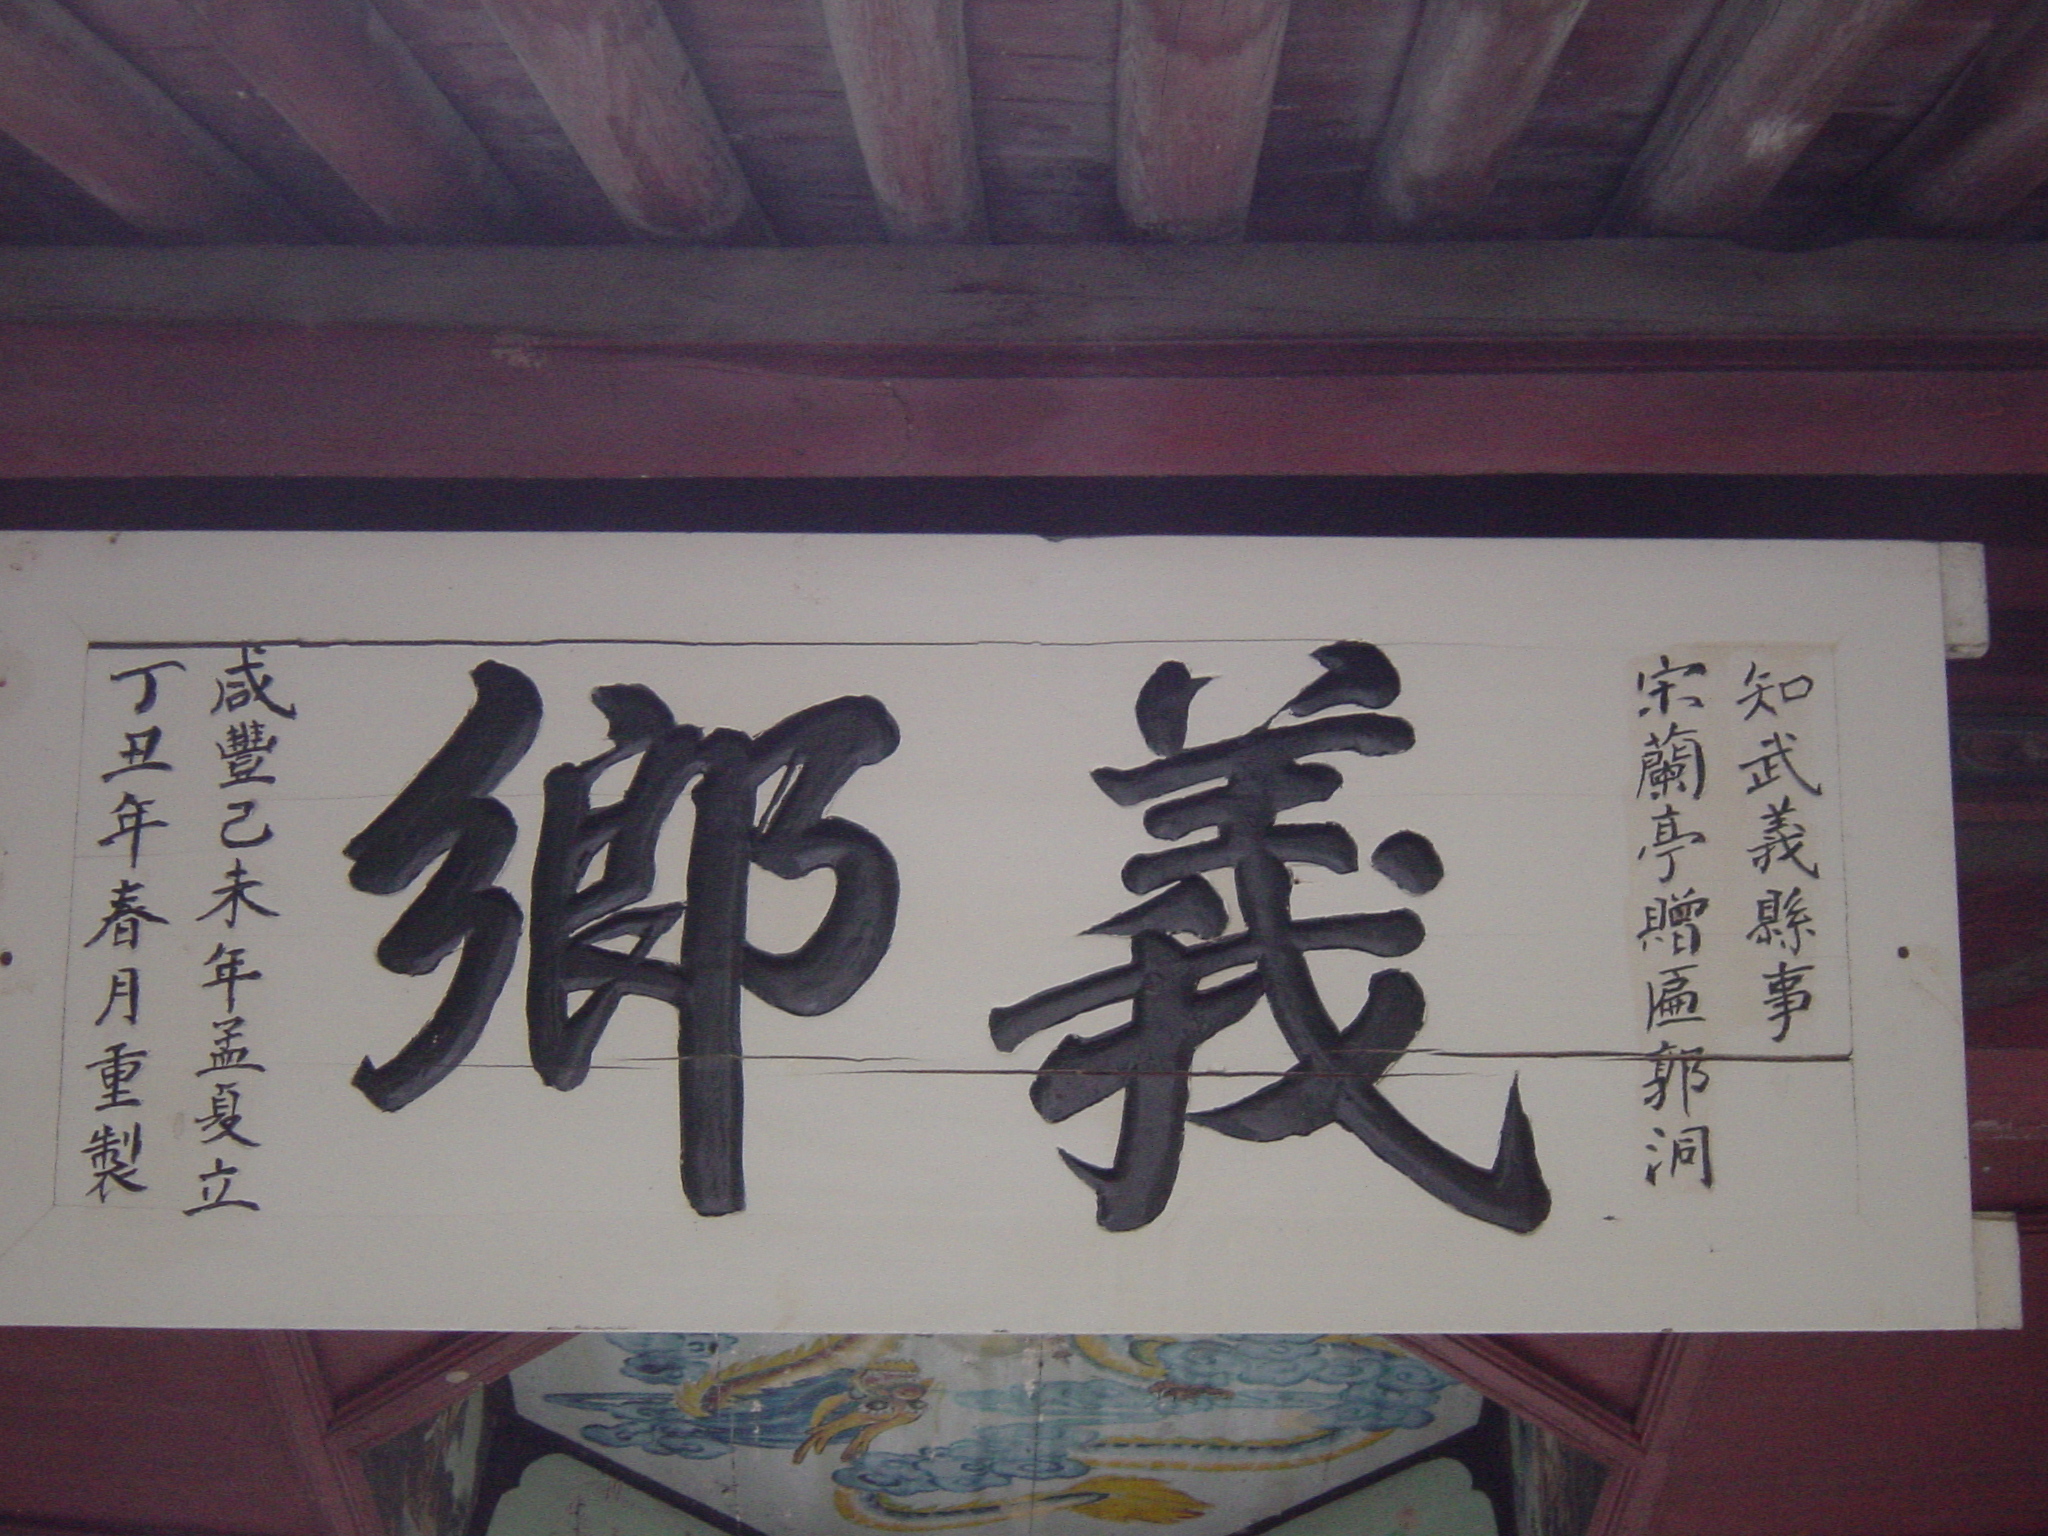 知武義縣事
宋蘭亭贈匾郭洞
義鄉
咸豐己未年孟夏立
丁丑年春月重製